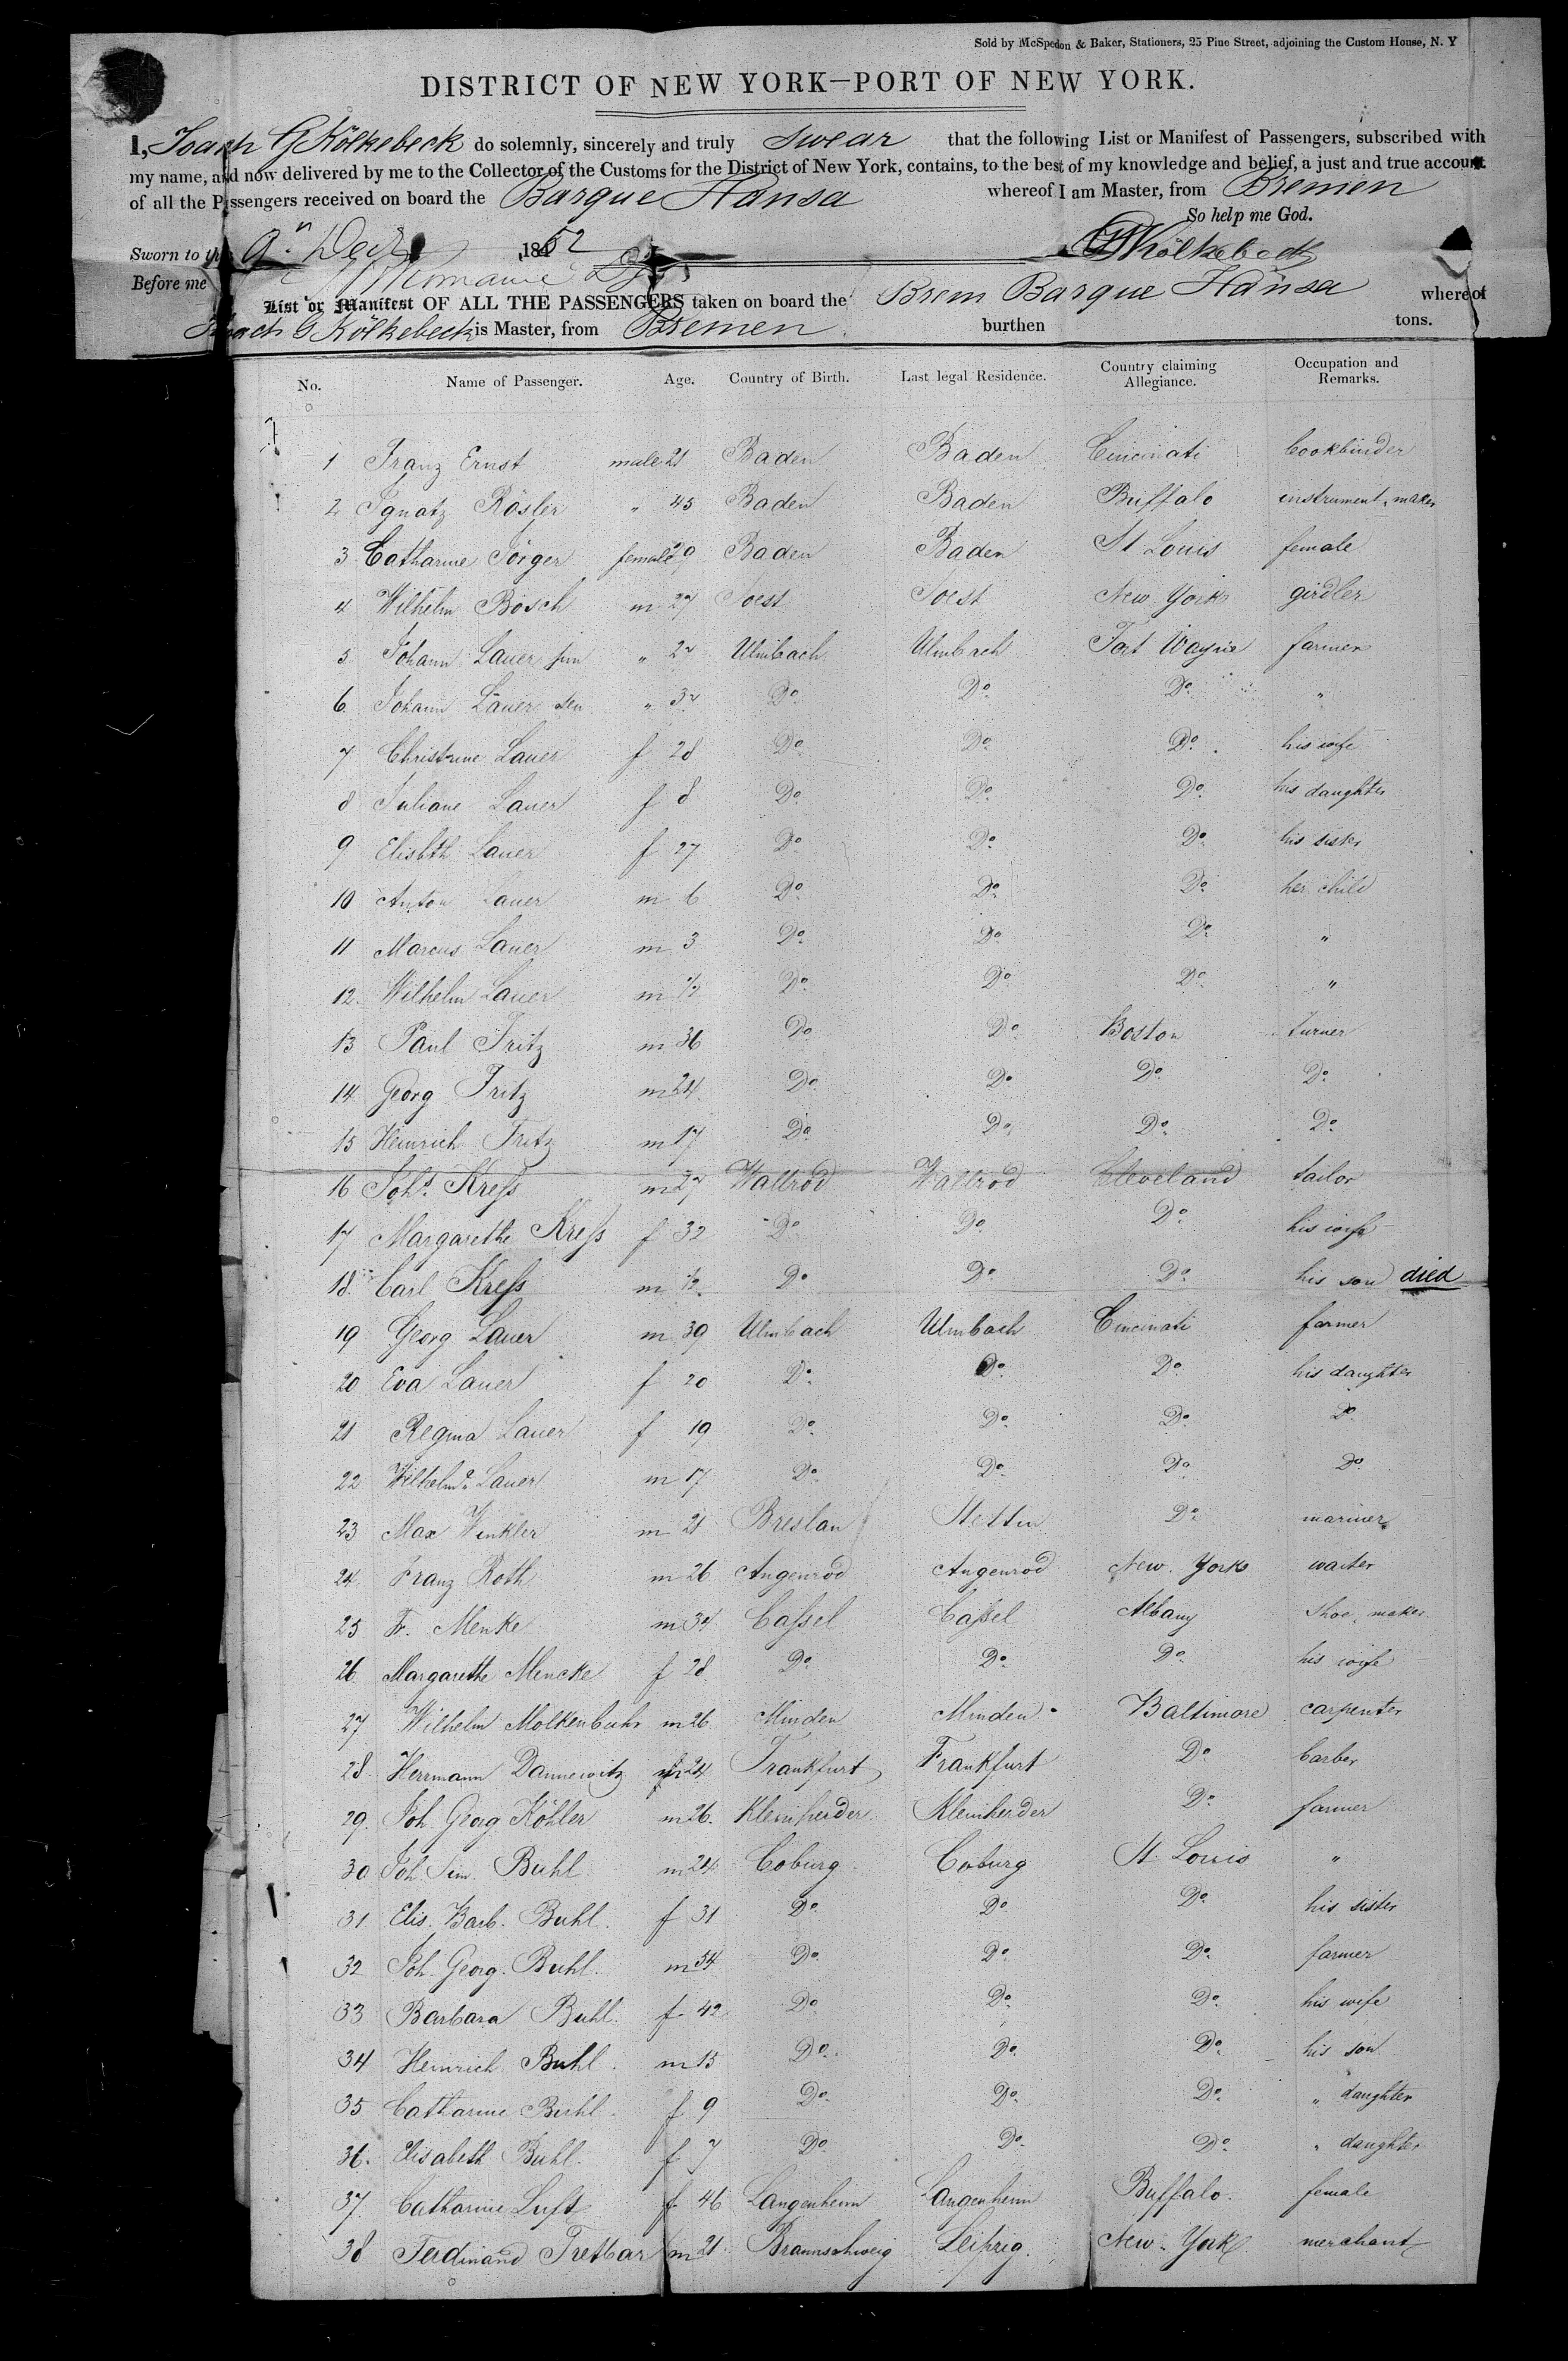 Sold by McSpedon & Baker, Stationers, 25 Pine Street, adjoining the Custom House, N. Y
DISTRICT OF NEW YORK—PORT OF NEW YORK.
I, Joach G Kölkebeck do solemnly, sincerely and truly swear that the following List or Manifest of Passengers, subscribed with
my name, and now delivered by me to the Collector of the Customs for the District of New York, contains, to the best of my knowledge and belief, a just and true account
of all the Passengers received on board the Barque Hansa whereof I am Master, from Bremen
So help me God.
Sworn to th 9n Decr 1852 JGKölkebeck
Before me
List or Manifest OF ALL THE PASSENGERS taken on board the Brem Barque Hansa whereof
Joach G Kölkebeck is Master, from Bremen. burthen tons.
No. Name of Passenger. Age. Country of Birth. Last legal Residence. Country claiming Allegiance. Occupation and Remarks.
1 Franz Ernst male 21 Baden Baden Cincinati bookbinder
2 Ignatz Rösler " 45 Baden Baden Buffalo instrument maker
3 Catharine Jörger female 29 Baden Baden St Louis female
4 Wilhelm Bösch m 27 Soest Soest New York girdler
5 Johann Lauer jun " 27 Ulmbach Ulmbach Fort Wayne farmer
6. Johann Lauer sen " 37 Do Do Do "
7 Christine Lauer f 28 Do Do Do his wife
8 Juliane Lauer f 8 Do Do Do his daughter
9 Elisbth Lauer f 27 Do Do Do his sister
10 Anton Lauer m 6 Do Do Do her child
11 Marcus Lauer m 3 Do Do Do "
12. Wilhelm Lauer m 1/2 Do Do Do "
13 Paul Fritz m 36 Do Do Boston turner
14 Georg Fritz m 24 Do Do Do Do
15 Heinrich Fritz m 17 Do Do Do Do
16 Johs. Kress m 27 Wallrod Wallrod Cleveland tailor
17 Margarethe Kress f 32 Do Do Do his wife
18. Carl Kress m 1/2 Do Do Do his son died
19 Georg Lauer m 39 Ulmbach Ulmbach Cincinati farmer
20 Eva Lauer f 20 Do Do Do his daughter
21 Regina Lauer f 19 Do Do Do Do
22 Wilhelme Lauer m 17 Do Do Do Do
23 Max Winkler m 21 Breslau Stettin Do mariner
24 Franz Roth m 26 Angenrod Angenrod New York waiter
25 Fr. Menke m 34 Cassel Cassel Albany Shoe maker
26 Margarethe Mencke f 28 Do Do Do his wife
27 Wilhelm Molkenbuhr m 26 Minden Minden Baltimore carpenter
28. Herrmann Dannewitz m 24 Frankfurt Frankfurt Do barber
29. Joh. Georg Köhler m 26. Kleinherder Kleinherder Do farmer
30 Joh. Sim. Buhl m 24 Coburg Coburg St. Louis "
31 Elis. Barb. Buhl. f 31 Do Do Do his sister
32 Joh. Georg. Buhl. m 54 Do Do Do farmer
33 Barbara Buhl. f 42 Do Do Do his wife
34 Heinrich Buhl. m 15 Do Do Do his son
35 Catharine Buhl f 9 Do Do Do " daughter
36. Elisabeth Buhl. f 7 Do Do Do " daughter
37. Catharine Luft f 46 Langenheim Langenheim Buffalo. female
38 Ferdinand Tretbar m 21 Braunschweig Leipzig. New York merchant